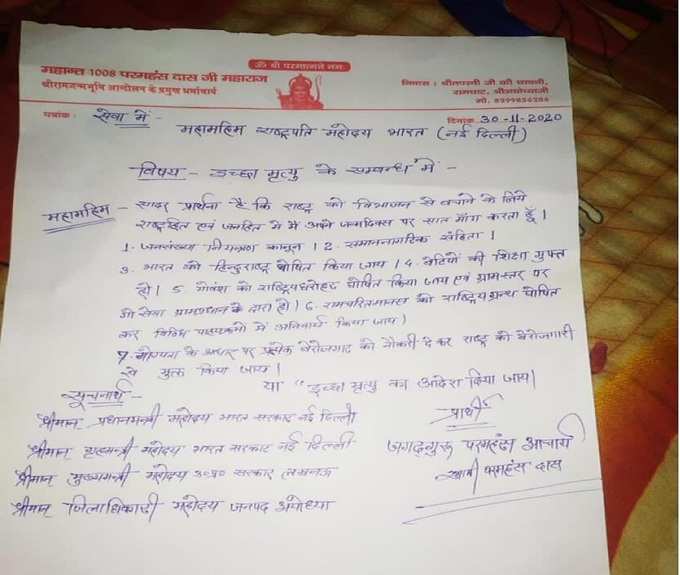 ॐ श्री परमात्मने नमः
महान्त 1008 परमहंस दास जी महाराज
श्रीरामजन्मभूमि आन्दोलन के प्रमुख धर्माचार्य
निवास : श्रीतपस्वी जी की छावनी,
रामघाट, श्रीअयोध्याजी
मो.
पत्रांक : सेवा में - दिनांक 30-11-2020
महामहिम राष्ट्रपति महोदय भारत (नई दिल्ली)
विषय - इच्छा मृत्यु के सम्बन्ध में -
महामहिम - सादर प्रार्थना है कि राष्ट्र को विभाजन से बचाने के लिये
राष्ट्रहित एवं जनहित में मैं अपने जन्मदिवस पर सात माँग करता हूँ।
1. जनसंख्या नियन्त्रण कानून। 2. समाननागरिक संहिता।
3. भारत को हिन्दुराष्ट्र घोषित किया जाय। 4. बेटियों की शिक्षा मुफ्त
हो। 5. गोवंश को राष्ट्रियधरोहर घोषित किया जाय एवं ग्रामस्तर पर
गो सेवा ग्रामप्रधान के द्वारा हो। 6. रामचरितमानस को राष्ट्रियग्रन्थ घोषित
कर विविध पाठ्यक्रमों में अनिवार्य किया जाय।
7. योग्यता के आधार पर प्रत्येक बेरोजगार को नौकरी देकर राष्ट्र को बेरोजगारी
से मुक्त किया जाय।
या "इच्छा मृत्यु का आदेश किया जाय।
सूचनार्थ -
प्रार्थी
श्रीमान् प्रधानमन्त्री महोदय भारत सरकार नई दिल्ली
श्रीमान् गृहमन्त्री महोदय भारत सरकार नई दिल्ली
जगद्गुरु परमहंस आचार्य
श्रीमान् मुख्यमन्त्री महोदय उ०प्र० सरकार लखनऊ
स्वामी परमहंस दास
श्रीमान् जिलाधिकारी महोदय जनपद अयोध्या